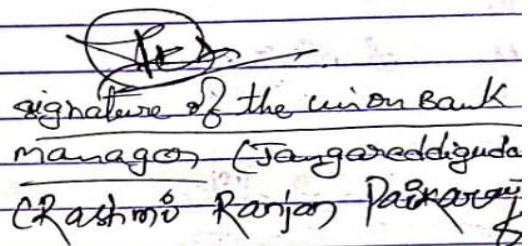 signature of the union Bank
manager (Jangareddiguda
(Rashmi Ranjan Paikaray